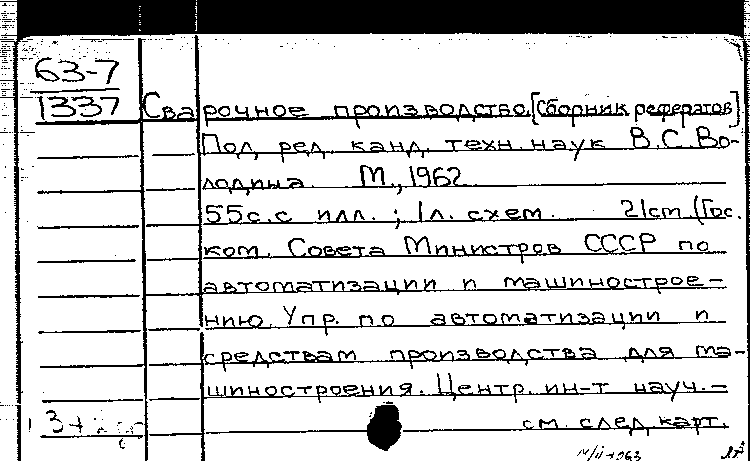 63-7
1337 Сварочное производство. [Сборник рефератов]
Под ред. канд. техн. наук В.С. Во-
лодина. М., 1962
55с. с илл. ; 1л. схем. 21cm (Гос.
ком. Совета Министров СССР по
автоматизации и машинострое-
нию. Упр. по автоматизации и
средствам производства для ма-
шиностроения. Центр. ин-т науч.-
см. след. карт.